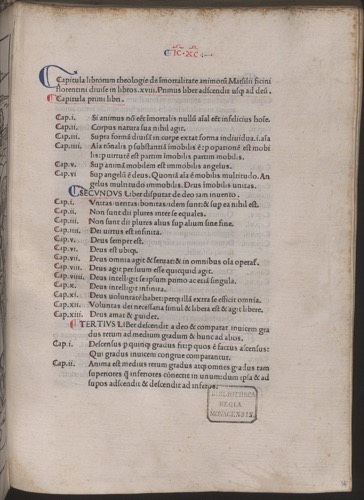 IC·XC·
Capitula librorum theologie de îmortalitate animorũ Marsilii ficini
florentini diuise in libros .xviii. Primus liber adscendit usq; ad deũ.
Capitula primi libri.
Cap.i. Si animus nõ eēt ĩmortalis nullũ aïal eēt infelicius hoĩe.
Cap.ii. Corpus natura sua nihil agit.
Cap.iii. Supra formã diuisã in corpe extat forma indiuidua.
Cap.iiii. Aĩa rõnalis p substantiã ĩmobilis ē: p operationē est mobi
lis: p uirtutē est partim ĩmobilis partim mobilis.
Cap.v. Supra animã mobilem est immobilis angelus.
Cap.vi Sup angelũ ē deus. Quoniã aĩa ē mobilis multitudo. An
gelus multitudo immobilis. Deus ĩmobilis unitas.
SECVNDVS Liber disputat de deo iam inuento.
Cap.i. Vnitas: ueritas: bonitas idem sunt: & sup ea nihil est.
Cap.ii. Non sunt dii plures inter se equales.
Cap.iii. Non sunt dii plures alius sup alium sine fine.
Cap.iiii. Dei uirtus est infinita.
Cap.v. Deus semper est.
Cap.vi. Deus est ubiq;.
Cap.vii. Deus omnia agit & seruat: & in omnibus oĩa operat̃.
Cap.viii. Deus agit per suum esse quicquid agit.
Cap.viiii. Deus intelligit se ipsum primo ac etiã singula.
Cap.x. Deus intelligit infinita.
Cap.xi. Deus uoluntatē habet: perq; illã extra se efficit omnia.
Cap.xii. Voluntas dei necessaria simul & libera est: & agit libere.
Cap.xiii. Deus amat & guidet.
TERTIVS LIBer descendit a deo & comparat inuicem gra
dus rerum ad medium gradum & hunc ad alios.
Cap.i. Descensus p quinq; gradus fit: p quos ē factus ascensus:
Qui gradus inuicem congrue comparantur.
Cap.ii. Anima est medius rerum gradus atq; omnes gradus tam
superiores q̃ inferiores cõnectit in unum: dum ipsa & ad
supos adscendit & descendit ad inferos.
BIBLIOTHECA
REGIA
MONACENSIS